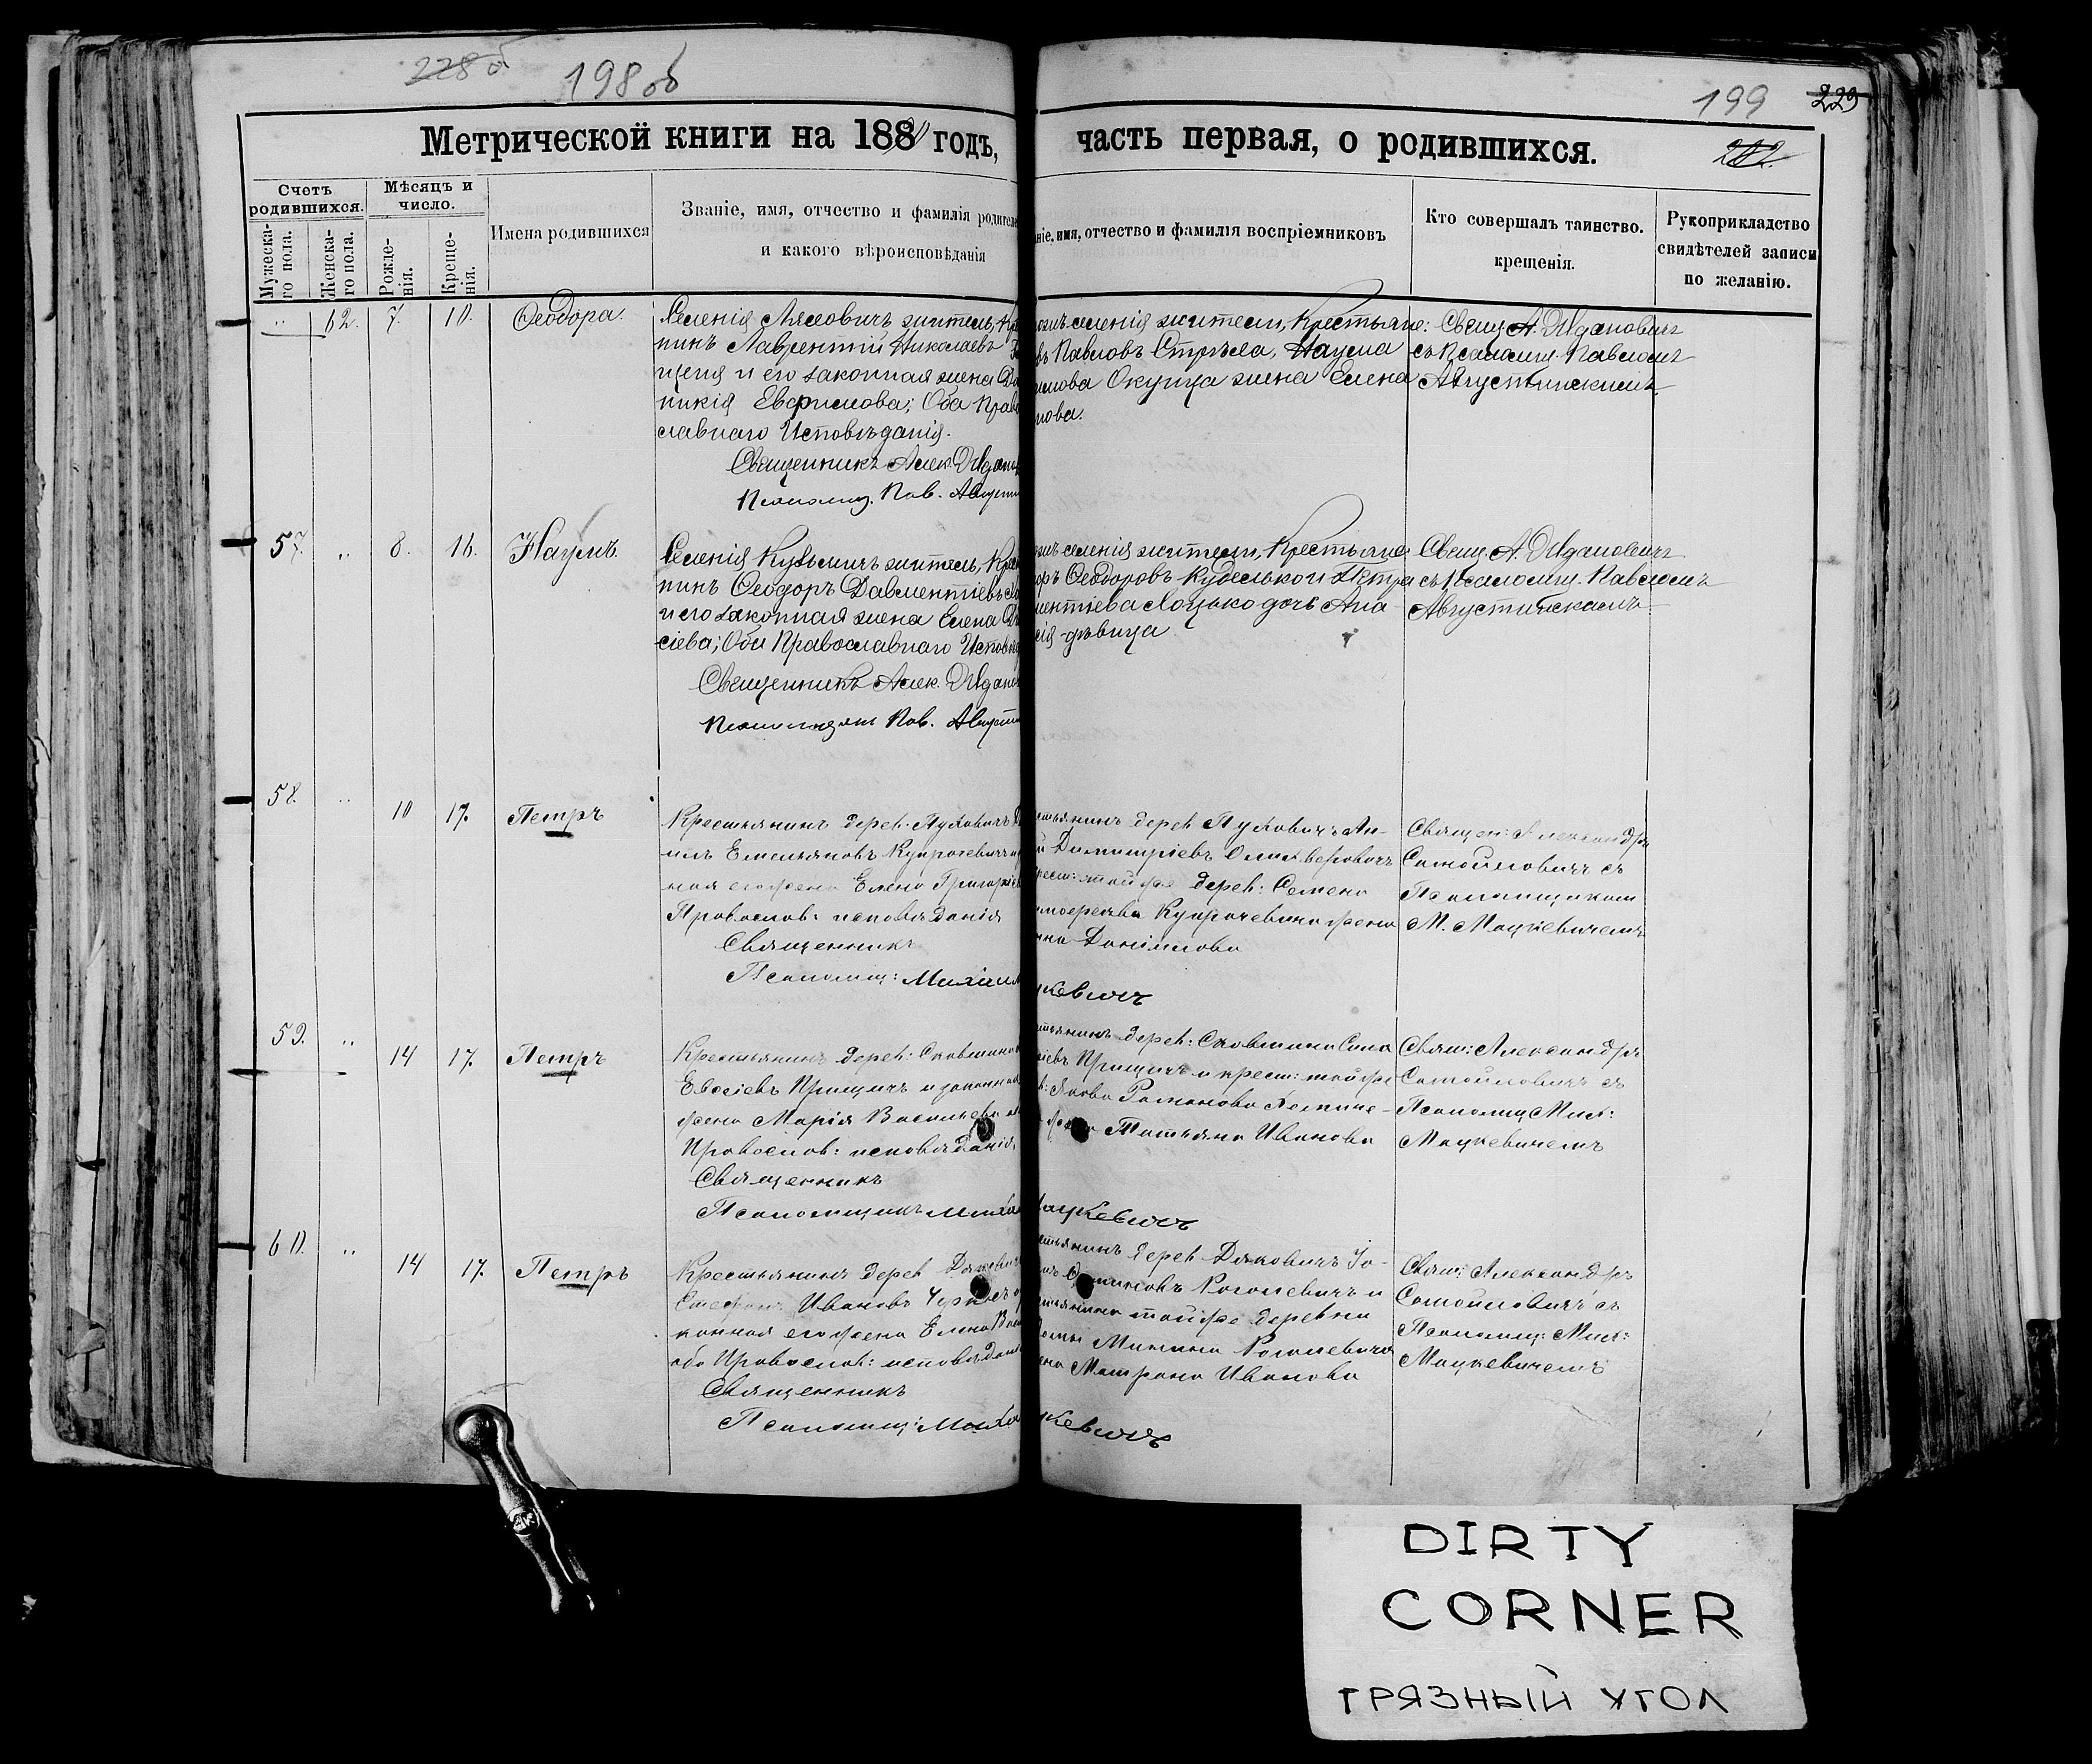 228 об
198 об
199
229
Метрической книги на 188 годъ,
часть первая, о родившихся.
Счетъ родившихся.
Мѣсяцъ и число.
Мужеска-го пола.
Женска-го пола.
Рожде-нія.
Креще-нія.
Имена родившихся
Званіе, имя, отчество и фамилія родителе
и какого вѣроисповѣданія
ніе, имя, отчество и фамилія воспріемниковъ
Кто совершалъ таинство.
крещенія.
Рукоприкладство
свидѣтелей записи
по желанію.
" 62. 7. 10. Ѳеодора.
Селенія Лясковичъ житель, Кре
нинъ Лаврентій Николаевъ
и его законная жена
никія Евфимова; Оба Право
славнаго Исповѣданія.
Священникъ Алек. Ждано
Псаломщ. Пав. Августи
селенія жители, Крестьяне:
въ Павловъ Стрѣла, Наума
имова Окуцца жена Елена
нова.
Свящ. А. Ждановичъ
съ Псаломщ. Павломъ
Августинскимъ
57. " 8. 16. Наумъ
Селенія Кузьмичъ житель, Крес
нинъ Ѳеодоръ Давментіевъ
и его законная жена Елена
сіева; Оба Православнаго Исповѣд
Священникъ Алек. Ждано
Псаломщикъ Пав. Августи
селенія жители, Крестьяне:
оръ Ѳеодоровъ и Петра
ментіева Лоцько дочь Ана
сія дѣвица
Свящ. А. Ждановичъ
съ Псаломщ. Павломъ
Августинскимъ
58. " 10 17. Петръ
Крестьянинъ дерев. Пуховичъ Да
нилъ Емельяновъ Купрочевичъ и
ная его жена Елена Григоріев
Православ: исповѣданія
Священникъ
Псаломщ: Михаилъ
стьянинъ дерев Пуховичъ Ан-
й Димитріевъ
крест: той же дерев: Семена
Тимоѳеева Купрочевича жена
Даниилова
цкевичъ
Священ: Александръ
Самойловичъ съ
Псаломщикомъ
М. Мацкевичемъ
59. " 14 17. Петръ
Крестьянинъ дерев:
Евсѣевъ Прищичъ и законная
жена Марія Васильева
Православ: исповѣданія,
Священникъ
Псаломщикъ Миха
стьянинъ дерев:
Прищичъ и крест: той же
Якова Романова
жена Татьяна Иванова
Мацкевичъ
Свящ: Александръ
Самойловичъ съ
Псаломщ Мих:
Мацкевичемъ
60. " 14 17. Петръ
Крестьянинъ дерев Дяковичъ
Стефанъ Ивановъ
конная его жена Елена Вас
оба Православ: исповѣдан
Священникъ
Псаломщ: Миха
стьянинъ дерев Дяковичъ Іо-
Рогалевичъ и
стьянина той же деревни
Минина Рогалевича
жена Матрона Иванова
цкевичъ
Свящ: Александръ
Самойловичъ съ
Псаломщ: Мих:
Мацкевичемъ
DIRTY
CORNER
ГРЯЗНЫЙ УГОЛ